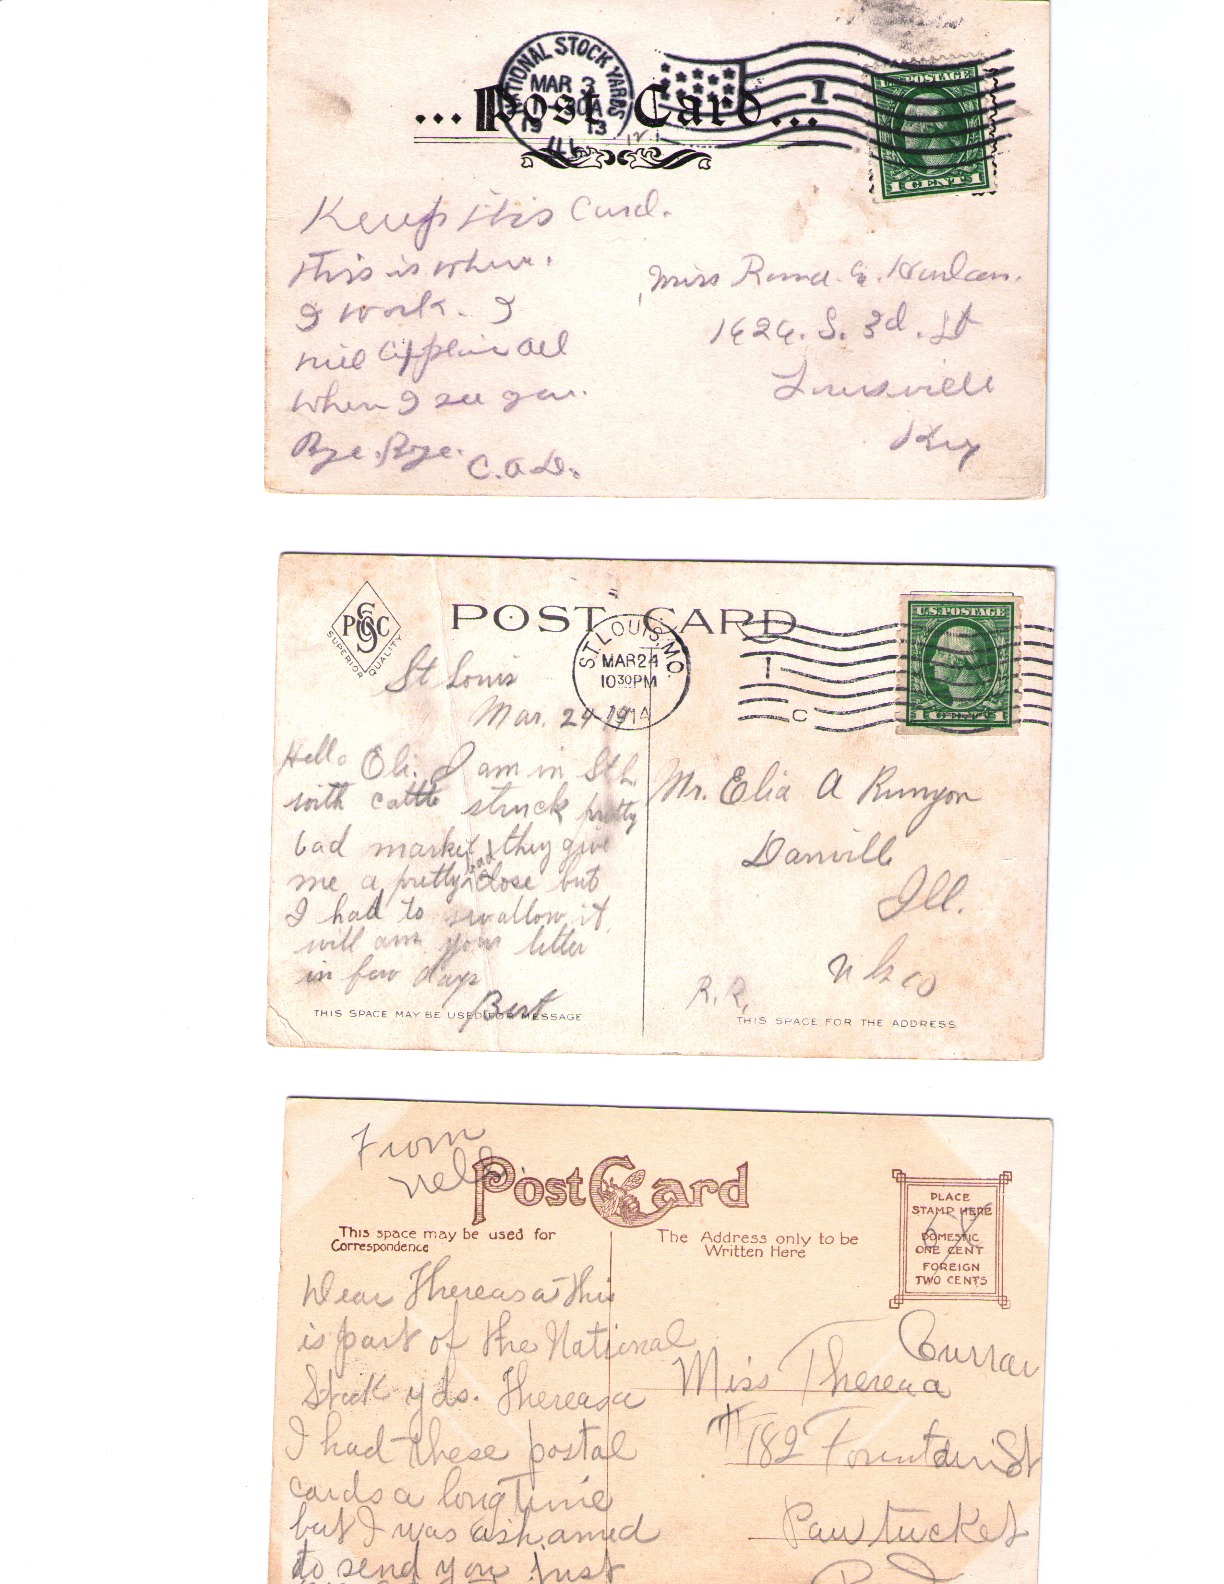 NATIONAL STOCK YARDS
MAR 3
19 13
ILL
1
... Post Card ...
U.S. POSTAGE
1 CENT 1
Keep this Card.
this is where
I work. I
will Explain all
when I see you.
Bye. Bye.
C.A.D.
Miss E. Harlan.
S. 3d. St
Louisville
Ky
PSC
SUPERIOR QUALITY
POST CARD
ST. LOUIS, MO.
MAR 24
10 30 PM
1914
1
C
U.S. POSTAGE
St Louis
Mar. 24 1914
Hello Eli. I am in St L
with cattle struck pretty
bad market they give
me a pretty bad dose but
I had to swallow it
will ans your letter
in few days
Bert
Mr. Elia A Runyon
Danville
Ill.
R.R.
THIS SPACE MAY BE USED FOR MESSAGE
THIS SPACE FOR THE ADDRESS
From
Nell
Post Card
This space may be used for
Correspondence
The Address only to be
Written Here
PLACE
STAMP HERE
DOMESTIC
ONE CENT
FOREIGN
TWO CENTS
Dear Thereasa this
is part of the National
Stock yds. Thereasa
I had these postal
cards a long time
but I was ashamed
to send you Just
Curran
Miss Theresa
#182 Fountain St
Pawtucket
R I